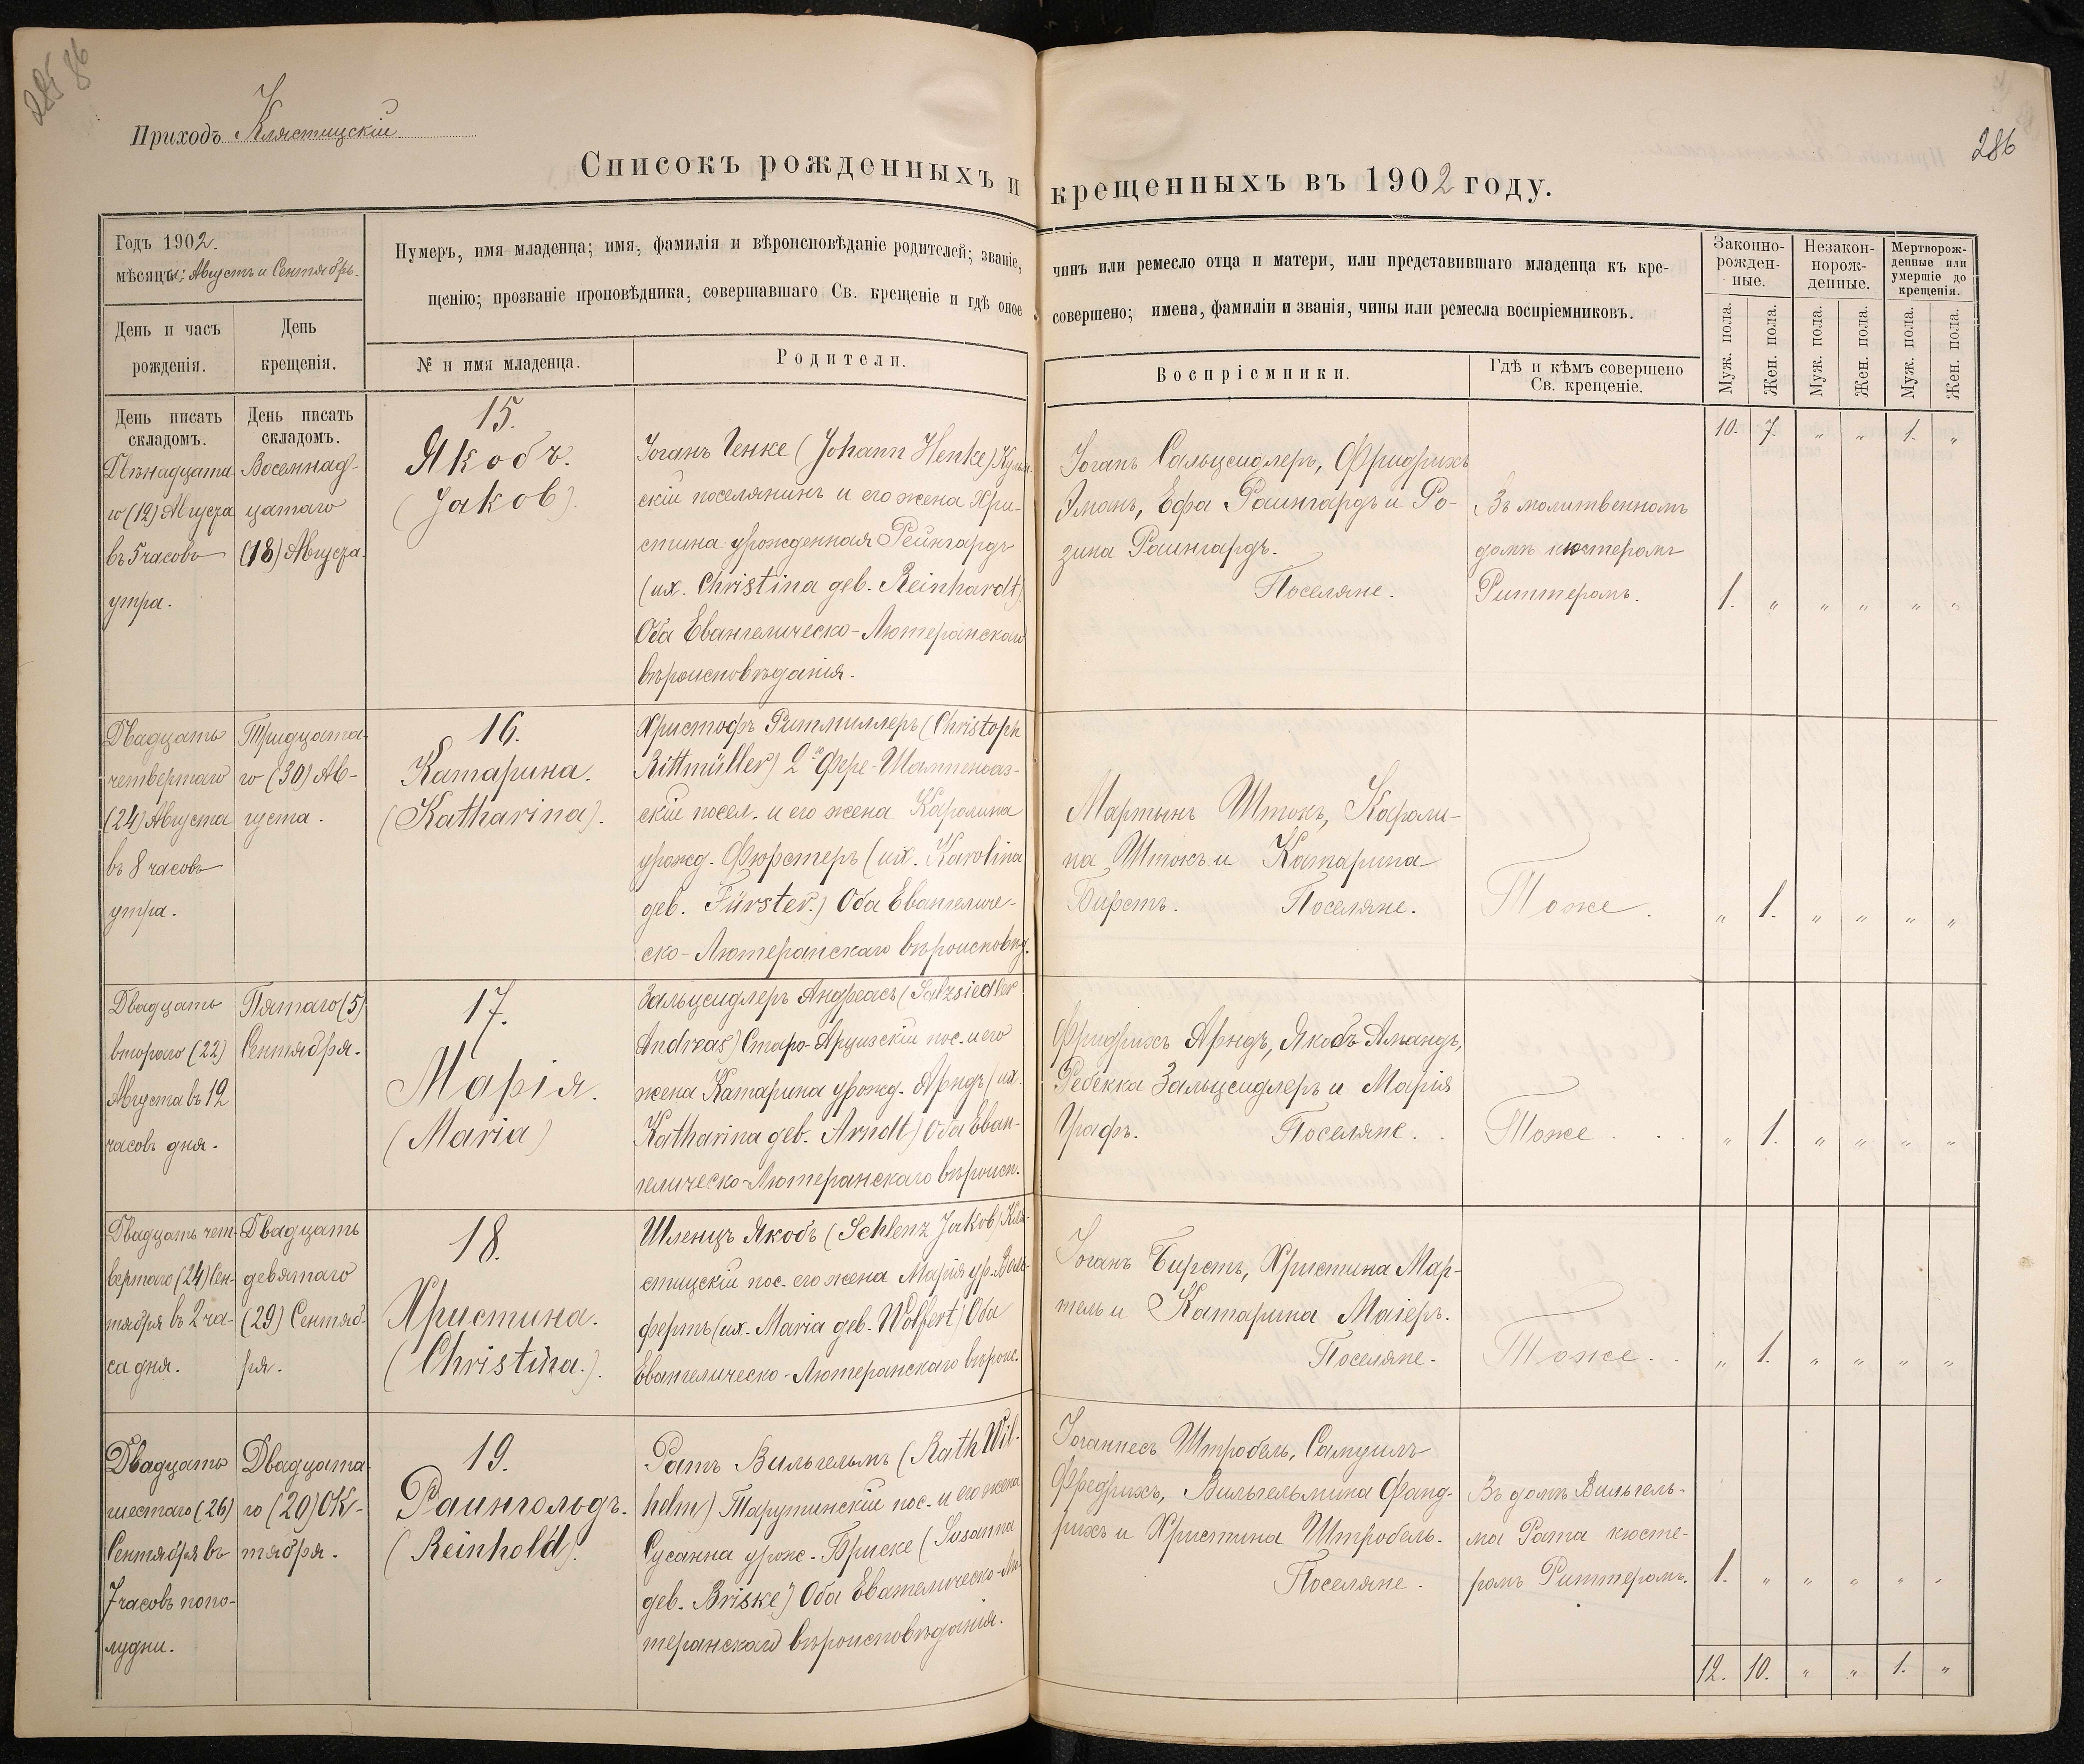 285 86
Приходъ Клястицскій.
286
Списокъ рожденныхъ и крещенныхъ въ 1902 году.
Годъ 1902.
мѣсяцы: Августъ и Сентябрь.
Нумеръ, имя младенца; имя, фамилія и вѣроисповѣданіе родителей; званіе,
щенію; прозваніе проповѣдника, совершавшаго Св. крещеніе и гдѣ оное
чинъ или ремесло отца и матери, или представившаго младенца къ кре-
совершено; имена, фамиліи и званія, чины или ремесла воспріемниковъ.
Законно-
рожден-
ные.
Незакон-
норож-
денные.
Мертворож-
денные или
умершіе до
крещенія.
День и часъ
рожденія.
День
крещенія.
№ и имя младенца.
Родители.
Воспріемники.
Гдѣ и кѣмъ совершено
Св. крещеніе.
Муж. пола.
Жен. пола.
Муж. пола.
Жен. пола.
Муж. пола.
Жен. пола.
День писать
складомъ.
День писать
складомъ.
10. 7. " " 1. "
Двѣнадцата-
го (12) Августа
въ 5 часовъ
утра.
Восемнад-
цатаго
(18) Августа.
15.
Якобъ.
(Jakob).
Іоганъ Генке (Johann Henke) Кульм-
скій поселянинъ и его жена Хри-
стина урожденная Рейнгардъ
(их. Christina geb. Reinhardt)
Оба Евангелическо-Лютеранскаго
вѣроисповѣданія.
Іоганъ Сальцсидлеръ, Фридрихъ
Эманъ, Ефа Раингардъ и Ро-
зина Раингардъ.
Поселяне.
Въ молитвенномъ
домѣ кюстеромъ
Риттеромъ.
1. " " " " "
Двадцать
четвертаго
(24) Августа
въ 8 часовъ
утра.
Тридцата-
го (30) Ав-
густа.
16.
Катарина.
(Katharina).
Христофъ Ритмиллеръ (Christoph
Rittmüller) 2го Фере-Шампеноаз-
скій посел. и его жена Каролина
урожд. Фюрстеръ (их. Karolina
geb. Fürster.) Оба Евангеличе-
ско-Лютеранскаго вѣроисповѣд.
Мартынъ Штокъ, Кароли-
на Штокъ и Катарина
Бирстъ. Поселяне.
Тоже.
" 1. " " " "
Двадцать
второго (22)
Августа въ 12
часовъ дня.
Пятаго (5)
Сентября.
17.
Марія.
(Maria)
Зальцсидлеръ Андреасъ (Salzsiedler
Andreas) Старо-Арцизскій пос. и его
жена Катарина урожд. Арндъ (их.
Katharina geb. Arndt) Оба Еван-
гелическо-Лютеранскаго вѣроисп.
Фридрихъ Арндъ, Якобъ Амандъ,
Ребекка Зальцсидлеръ и Марія
Графъ. Поселяне.
Тоже
" 1. " " " "
Двадцать чет-
вертаго (24) Сен-
тября въ 2 ча-
са дня.
Двадцать
девятаго
(29) Сентяб-
ря.
18.
Христина.
(Christina.).
Шленцъ Якобъ (Schlenz Jakob) Кля-
стицскій пос. его жена Марія ур. Воль-
фертъ (их. Maria geb. Wolfert) Оба
Евангелическо-Лютеранскаго вѣроис.
Іоганъ Бирстъ, Христина Мар-
тель и Катарина Маіеръ.
Поселяне.
Тоже.
" 1. " " " "
Двадцать
шестаго (26)
Сентября въ
7 часовъ попо-
лудни.
Двадцата-
го (20) Ок-
тября.
19.
Раингольдъ.
(Reinhold).
Ратъ Вильгельмъ (Rath Wil-
helm) Тарутинскій пос. и его жена
Сусанна урож. Бриске (Susanna
geb. Briske) Оба Евангелическо-Лю-
теранскаго вѣроисповѣданія.
Іоганнесъ Штробель, Самуилъ
Фредрихъ, Вильгельмина Фанд-
рихъ и Христина Штробель.
Поселяне.
Въ домѣ Вильгель-
ма Рата кюсте-
ромъ Риттеромъ.
1. " " " " "
12. 10. " " 1. "